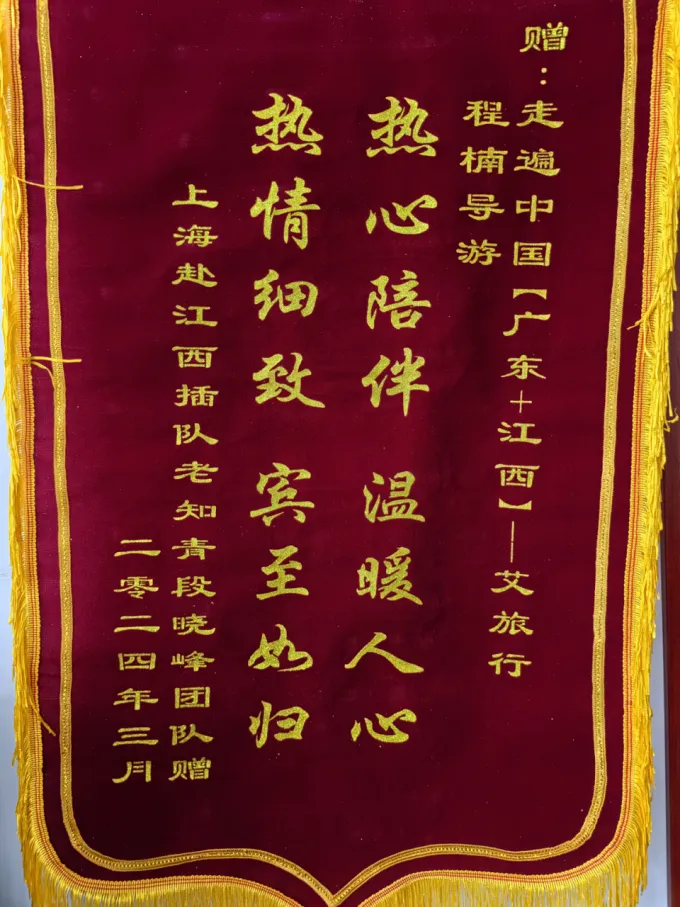 赠：走遍中国【广东+江西】—艾旅行
程楠导游
热心陪伴 温暖人心
热情细致 宾至如归
上海赴江西插队老知青段晓峰团队赠
二零二四年三月